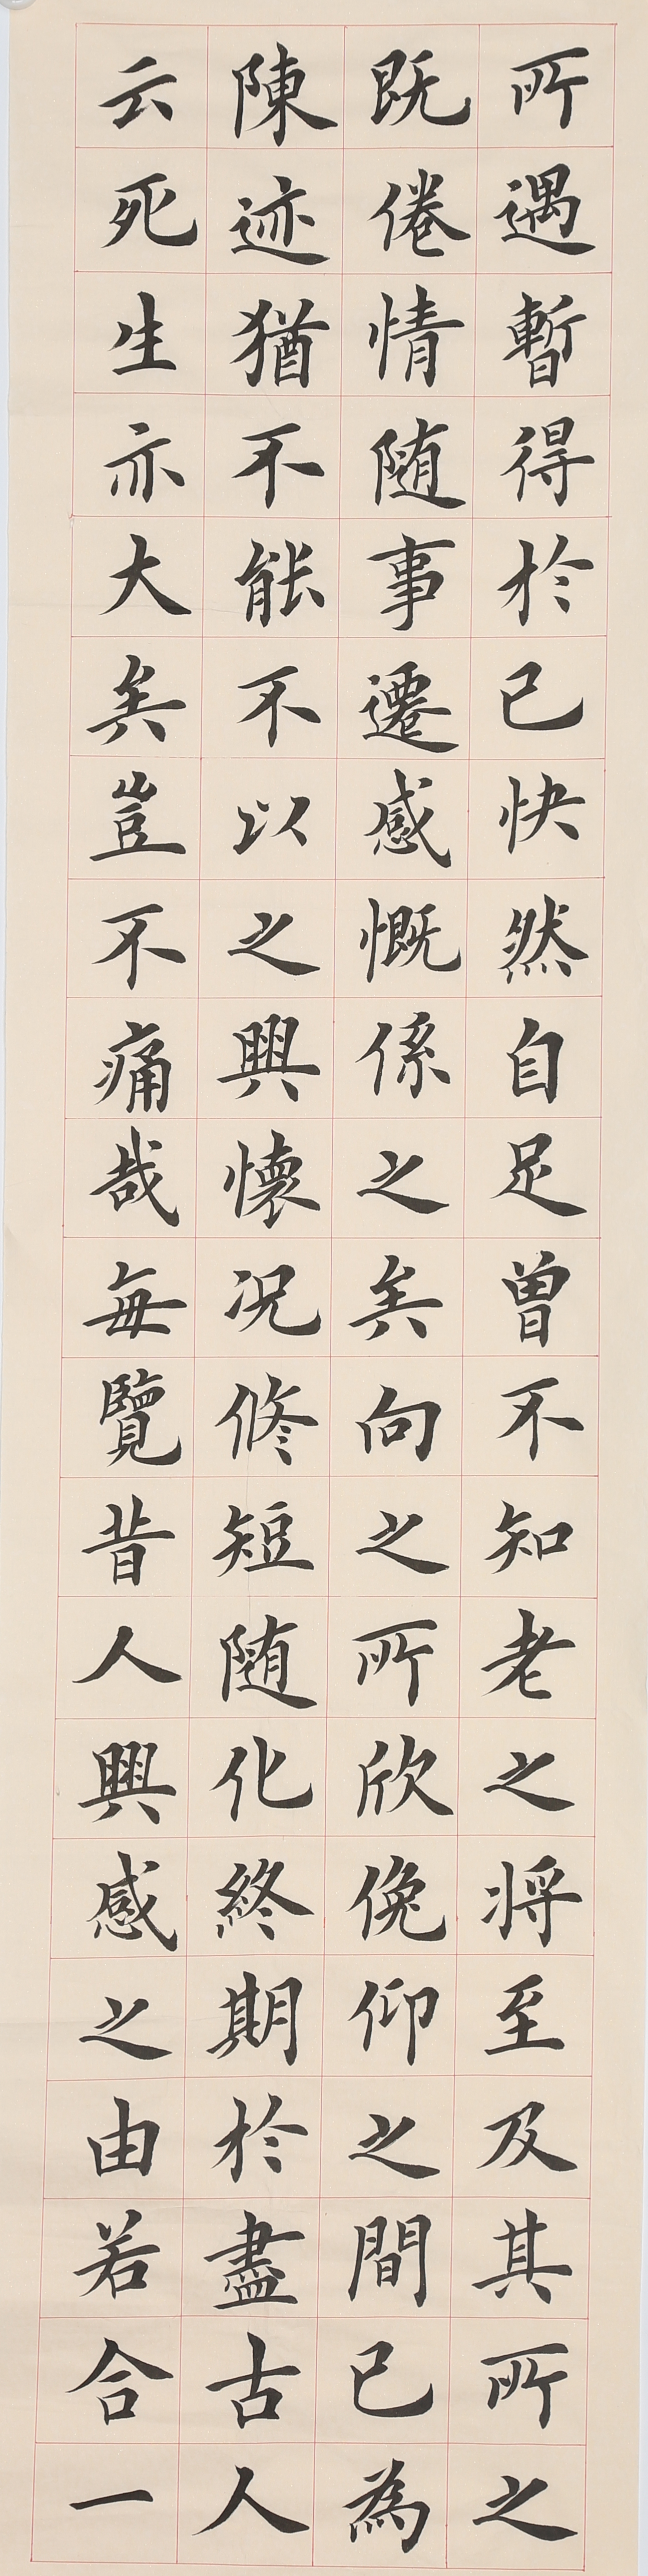 所遇暫得於己快然自足曽不知老之将至及其所之
既倦情随事遷感慨係之矣向之所欣俛仰之間已為
陳迹猶不能不以之興懷况修短随化終期於盡古人
云死生亦大矣豈不痛哉每覽昔人興感之由若合一